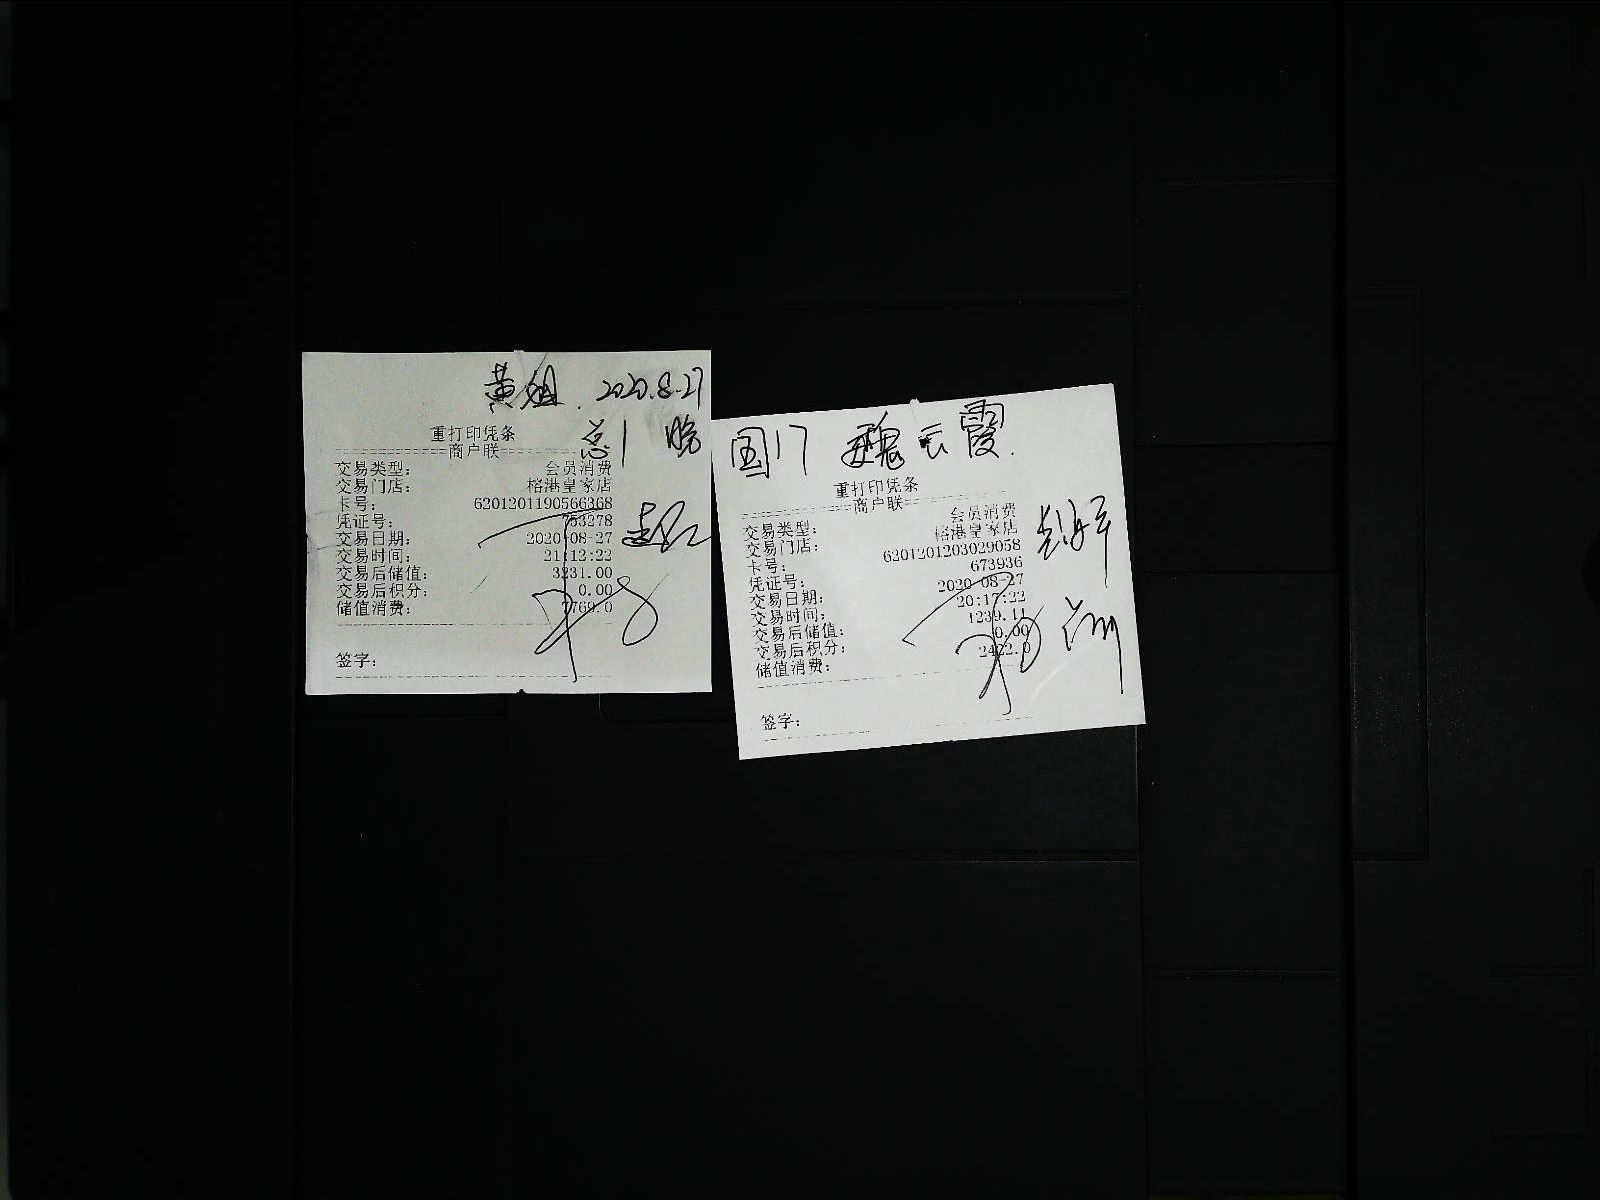 黄姐. 2020.8.27
总1 晚
重打印凭条
商户联
交易类型: 会员消费
交易门店: 榕港皇家店
卡号: 6201201190566368
凭证号: 753278
交易日期: 2020-08-27
交易时间: 21:12:22
交易后储值: 3231.00
交易后积分: 0.00
储值消费: 7769.0
签字:
国17 魏云霞.
重打印凭条
商户联
交易类型: 会员消费
交易门店: 榕港皇家店
卡号: 6201201203029058
凭证号: 673936
交易日期: 2020-08-27
交易时间: 20:17:22
交易后储值: 1239.11
交易后积分: 0.00
储值消费: 2422.0
签字: